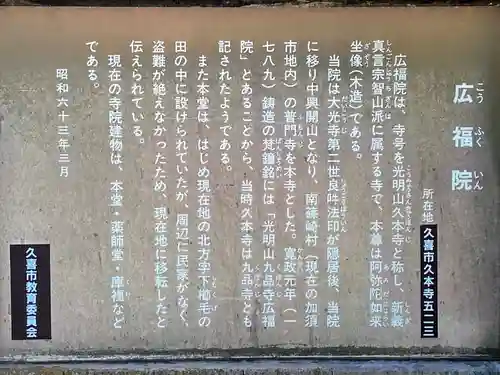 広福院
所在地 久喜市久本寺五二三
広福院は、寺号を光明山久本寺と称し、新義
真言宗智山派に属する寺で、本尊は阿弥陀如来
坐像(木造)である。
当院は大光寺第二世良吽法印が隠居後、当院
に移り中興開山となり、南篠崎村(現在の加須
市地内)の普門寺を本寺とした。寛政元年(一
七八九)鋳造の梵鐘銘には「光明山九品寺広福
院」とあることから、当時久本寺は九品寺とも
記されたようである。
また本堂は、はじめ現在地の北方字下櫤毛の
田の中に設けられていたが、周辺に民家がなく、
盗難が絶えなかったため、現在地に移転したと
伝えられている。
現在の寺院建物は、本堂・薬師堂・庫裡など
である。
昭和六十三年三月
久喜市教育委員会